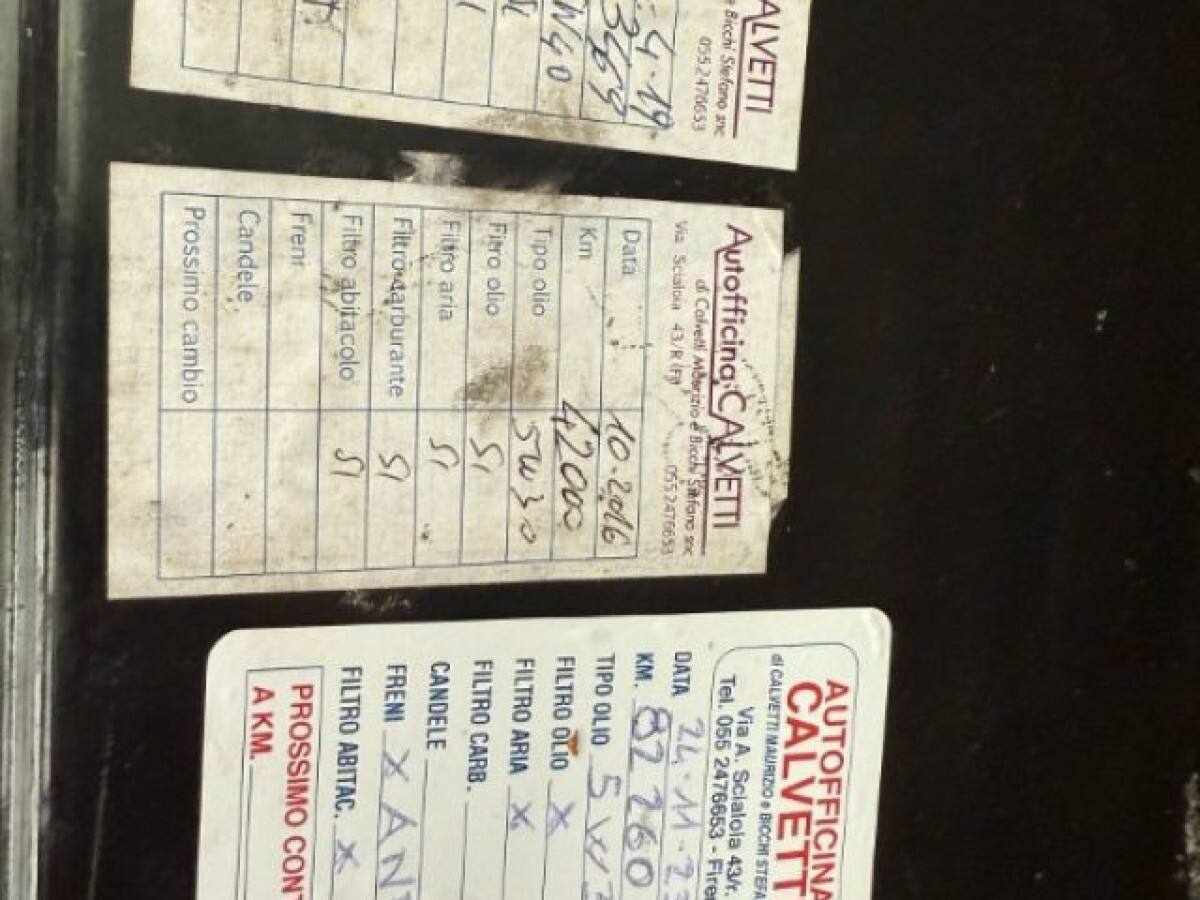 ALVETTI
e Bicchi Stefano snc
055.2476653
4.19
W40
Autofficina CALVETTI
di Calvetti Maurizio e Bicchi Stefano snc
Via Scialoia 43/R (FI) 055 2476653
Data 10-2016
Km 42000
Tipo olio 5W30
Filtro olio SI
Filtro aria SI
Filtro carburante SI
Filtro abitacolo SI
Freni
Candele
Prossimo cambio
AUTOFFICINA
CALVETT
di CALVETTI MAURIZIO e BICCHI STEFA
Via A. Scialoia 43/r.
Tel. 055 2476653 - Fire
DATA 24.11.23
KM. 82260
TIPO OLIO 5W3
FILTRO OLIO X
FILTRO ARIA X
FILTRO CARB.
CANDELE
FRENI X ANT
FILTRO ABITAC. X
PROSSIMO CONT
A KM.